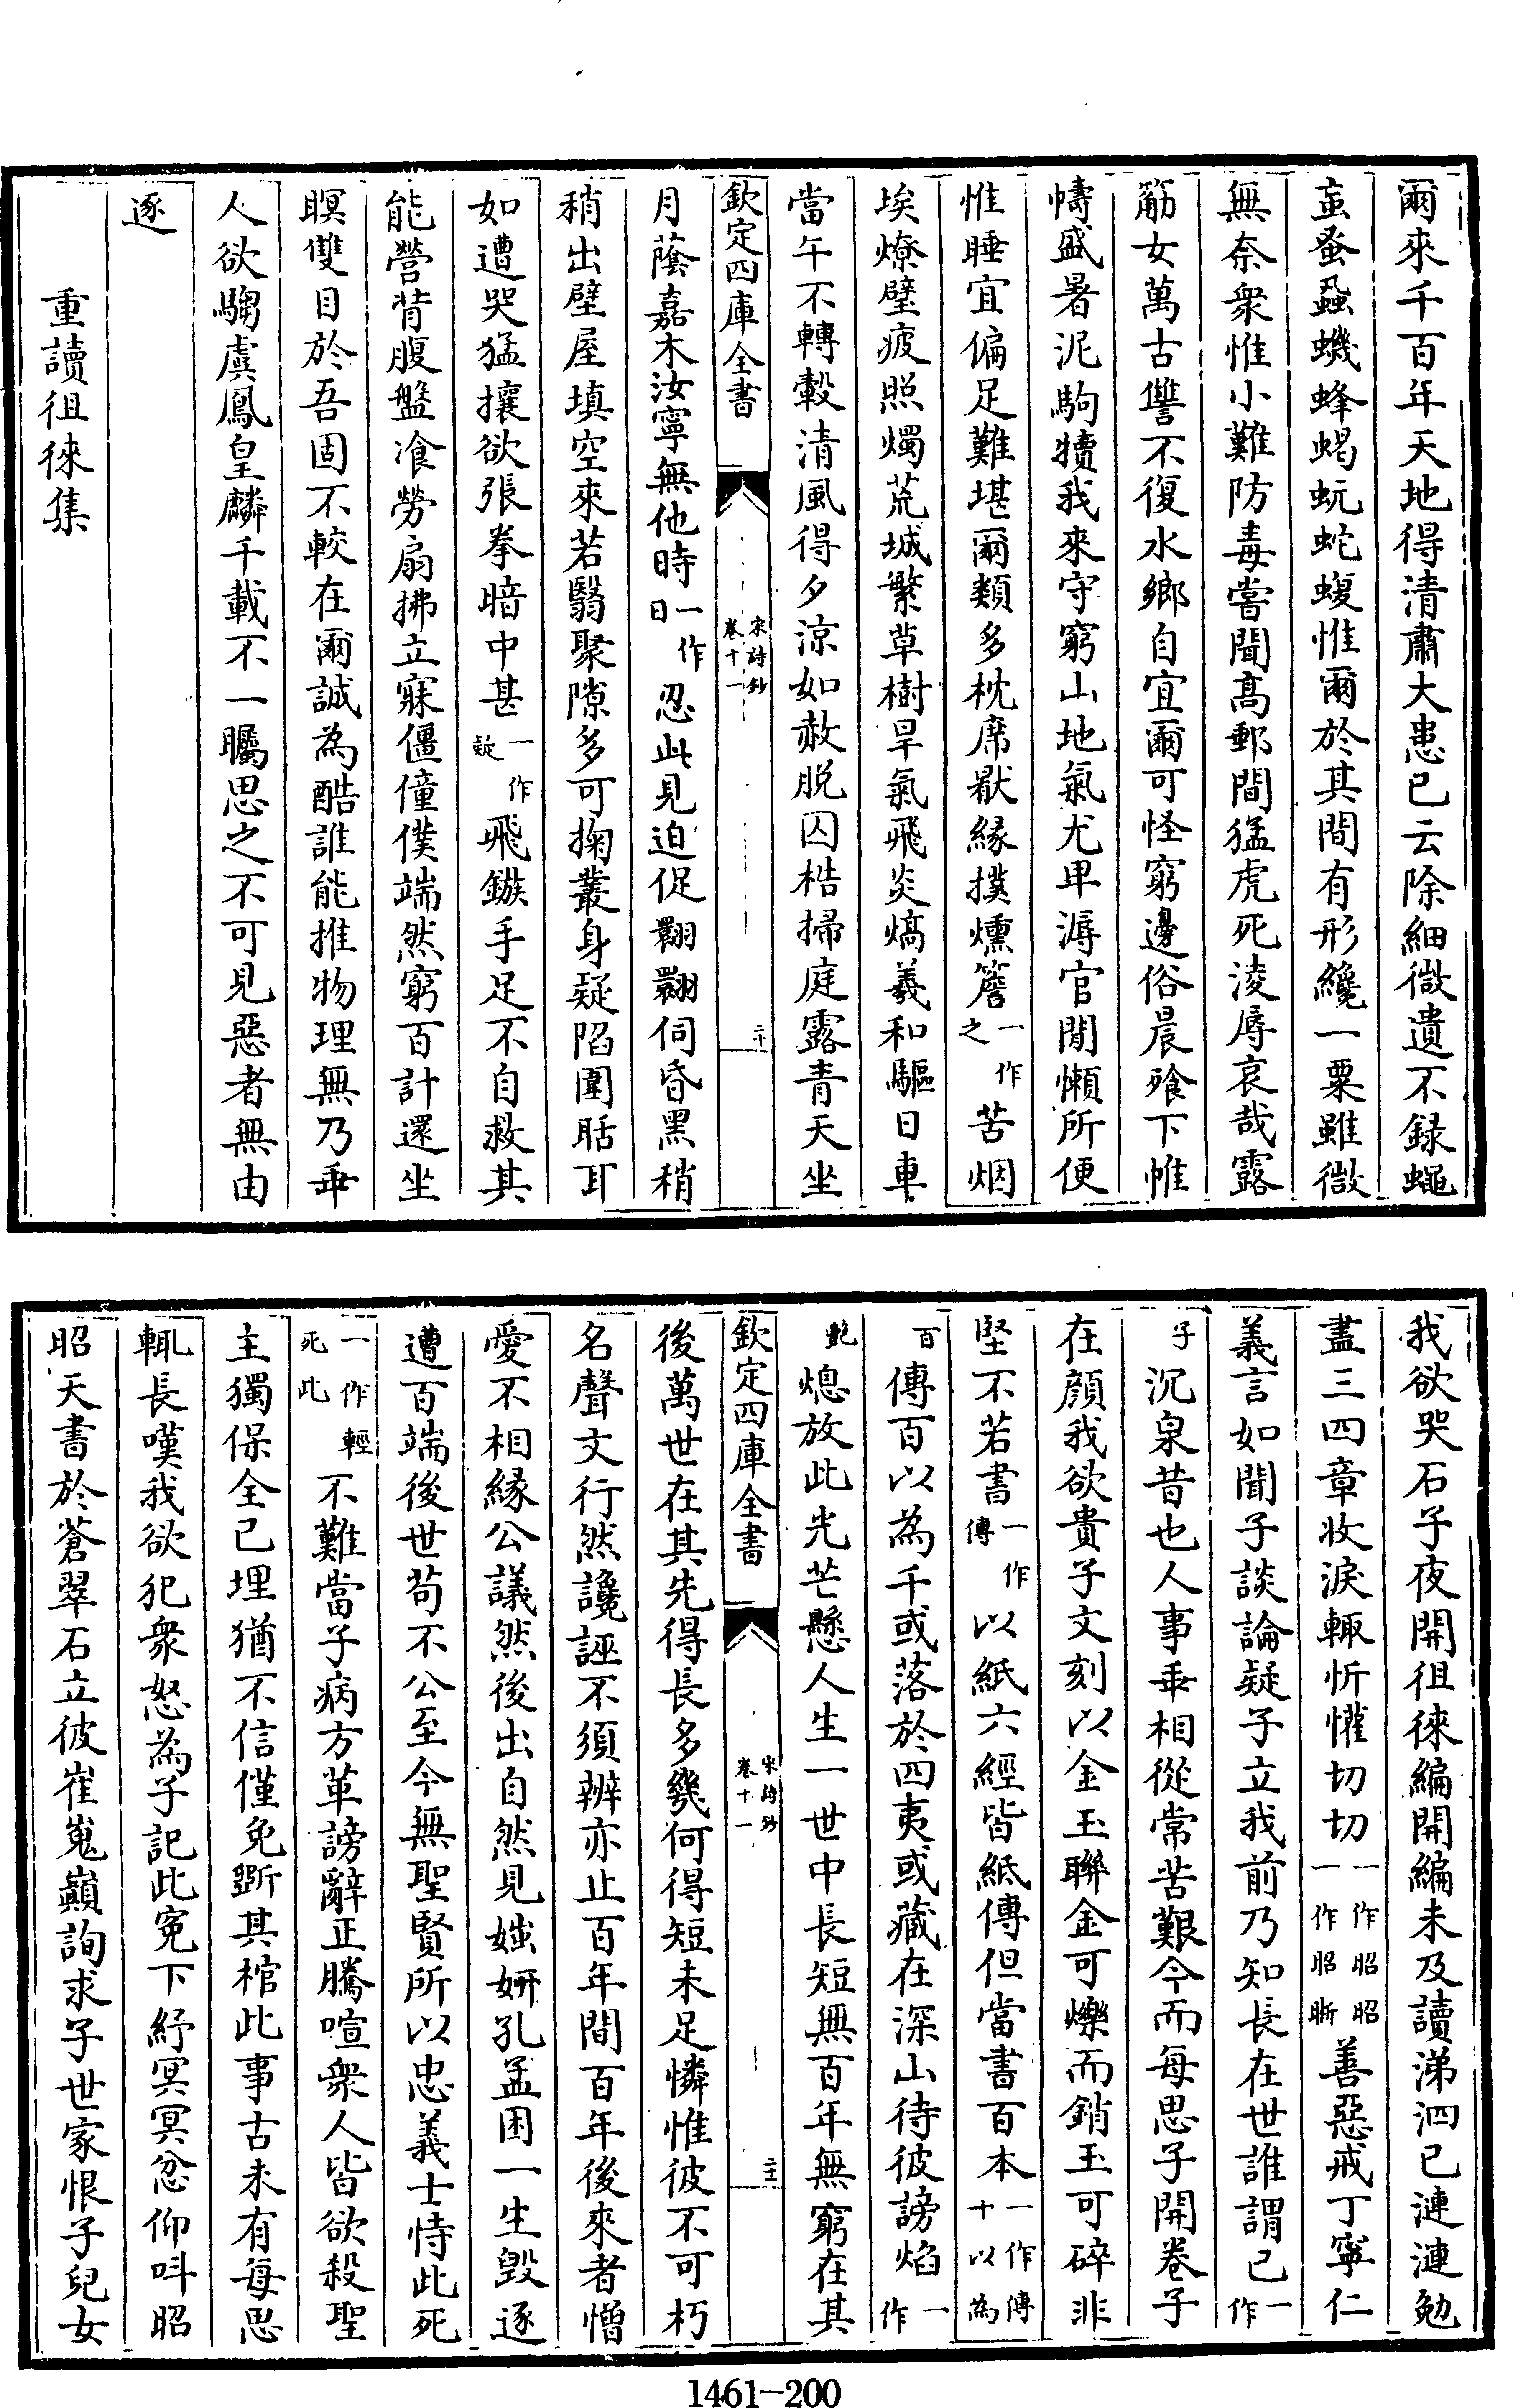 爾來千百年天地得清肅大患已云除細微遺不録蠅
䖟蚤蝨蟣蜂蝎蚖蛇蝮惟爾於其間有形纔一粟雖微
無奈衆惟小難防毒嘗聞髙郵間猛虎死淩辱哀哉露
筋女萬古讐不復水鄉自宜爾可怪窮邊俗晨飱下帷
幬盛暑泥駒犢我來守窮山地氣尤卑溽官閒懶所便
惟睡宜偏足難堪爾類多枕席厭緣撲燻簷一作之苦烟
埃燎壁疲照燭荒城繁草樹旱氣飛炎熇羲和驅日車
當午不轉轂清風得夕涼如赦脱囚梏掃庭露青天坐
欽定四庫全書
宋詩鈔
卷十一
二十
月蔭嘉木汝寧無他時一作日忍此見迫促翾翾伺昏黒稍
稍出壁屋填空來若翳聚隙多可掬叢身疑陷圍聒耳
如遭哭猛攘欲張拳暗中甚一作疑飛鏃手足不自救其
能營背腹盤飡勞扇拂立寐僵僮僕端然窮百計還坐
瞑雙目於吾固不較在爾誠為酷誰能推物理無乃乖
人欲騶虞鳳皇麟千載不一矚思之不可見惡者無由
逐
重讀徂徠集
我欲哭石子夜開徂徠編開編未及讀涕泗已漣漣勉
盡三四章收淚輒忻懽切切一作昭昭一作昭晣善惡戒丁寧仁
義言如聞子談論疑子立我前乃知長在世誰謂已一作
子沉泉昔也人事乖相從常苦艱今而每思子開卷子
在顔我欲貴子文刻以金玉聯金可爍而銷玉可碎非
堅不若書一作傳以紙六經皆紙傳但當書百本一作傳十以為
百傳百以為千或落於四夷或藏在深山待彼謗焰一作
艶熄放此光芒懸人生一世中長短無百年無窮在其
欽定四庫全書
宋詩鈔
卷十一
二十一
後萬世在其先得長多幾何得短未足憐惟彼不可朽
名聲文行然讒誣不須辨亦止百年間百年後來者憎
愛不相緣公議然後出自然見媸妍孔孟困一生毁逐
遭百端後世苟不公至今無聖賢所以忠義士恃此死
一作輕死此不難當子病方革謗辭正騰喧衆人皆欲殺聖
主獨保全已埋猶不信僅免斲其棺此事古未有每思
輒長嘆我欲犯衆怒為子記此寃下紓冥冥忿仰叫昭
昭天書於蒼翠石立彼崔嵬巔詢求子世家恨子兒女
1461-200